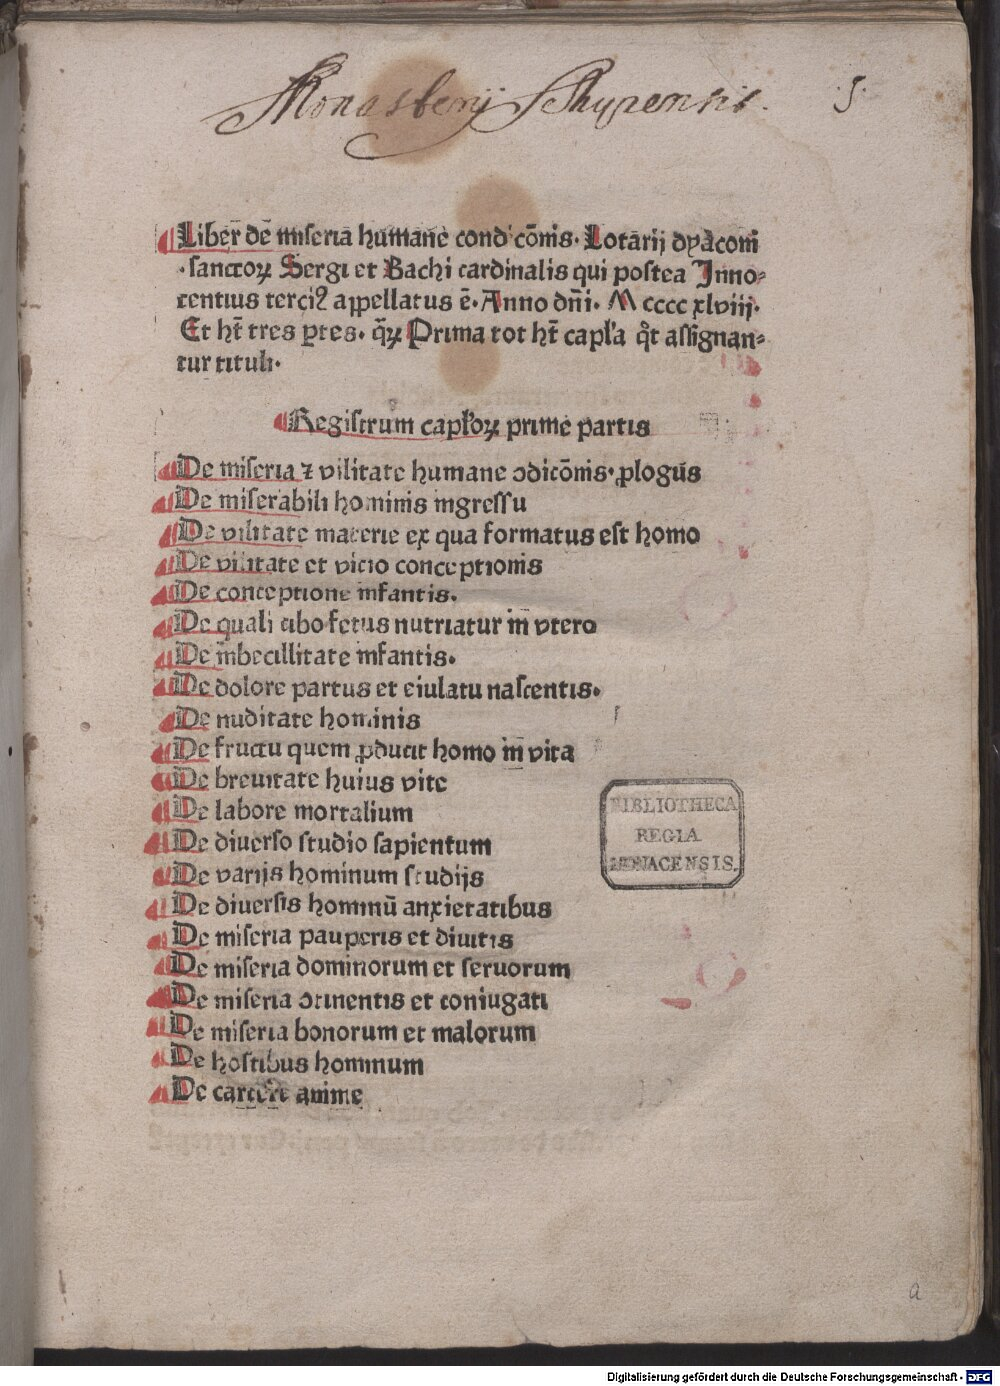 Monasterij Schyrensis. .5.
Liber dē miseria humane condicōnis. Lotarij dyaconi
.sanctoꝝ Sergi et Bachi cardinalis qui postea Inno-
centius terciꝰ appellatus ē. Anno dn̄i. M cccc xlviij.
Et hꝫ tres ꝑtes. qꝝ Prima tot hꝫ capl'a qͦt assignan-
tur tituli.
Registrum capl'oꝝ prime partis
De miseria ⁊ vilitate humane ꝯdicōnis. ꝓlogus
De miserabili hominis ingressu
De vilitate materie ex qua formatus est homo
De vilitate et vicio conceptionis
De conceptione infantis.
De quali cibo fetus nutriatur in vtero
De inbecillitate infantis.
De dolore partus et eiulatu nascentis.
De nuditate hominis
De fructu quem ꝓducit homo in vita
De breuitate huius vite
De labore mortalium
De diuerso studio sapientum
De varijs hominum studijs
De diuersis hominū anxietatibus
De miseria pauperis et diuitis
De miseria dominorum et seruorum
De miseria ꝯtinentis et coniugati
De miseria bonorum et malorum
De hostibus hominum
De carcere anime
BIBLIOTHECA
REGIA
MONACENSIS.
a
Digitalisierung gefördert durch die Deutsche Forschungsgemeinschaft - DFG